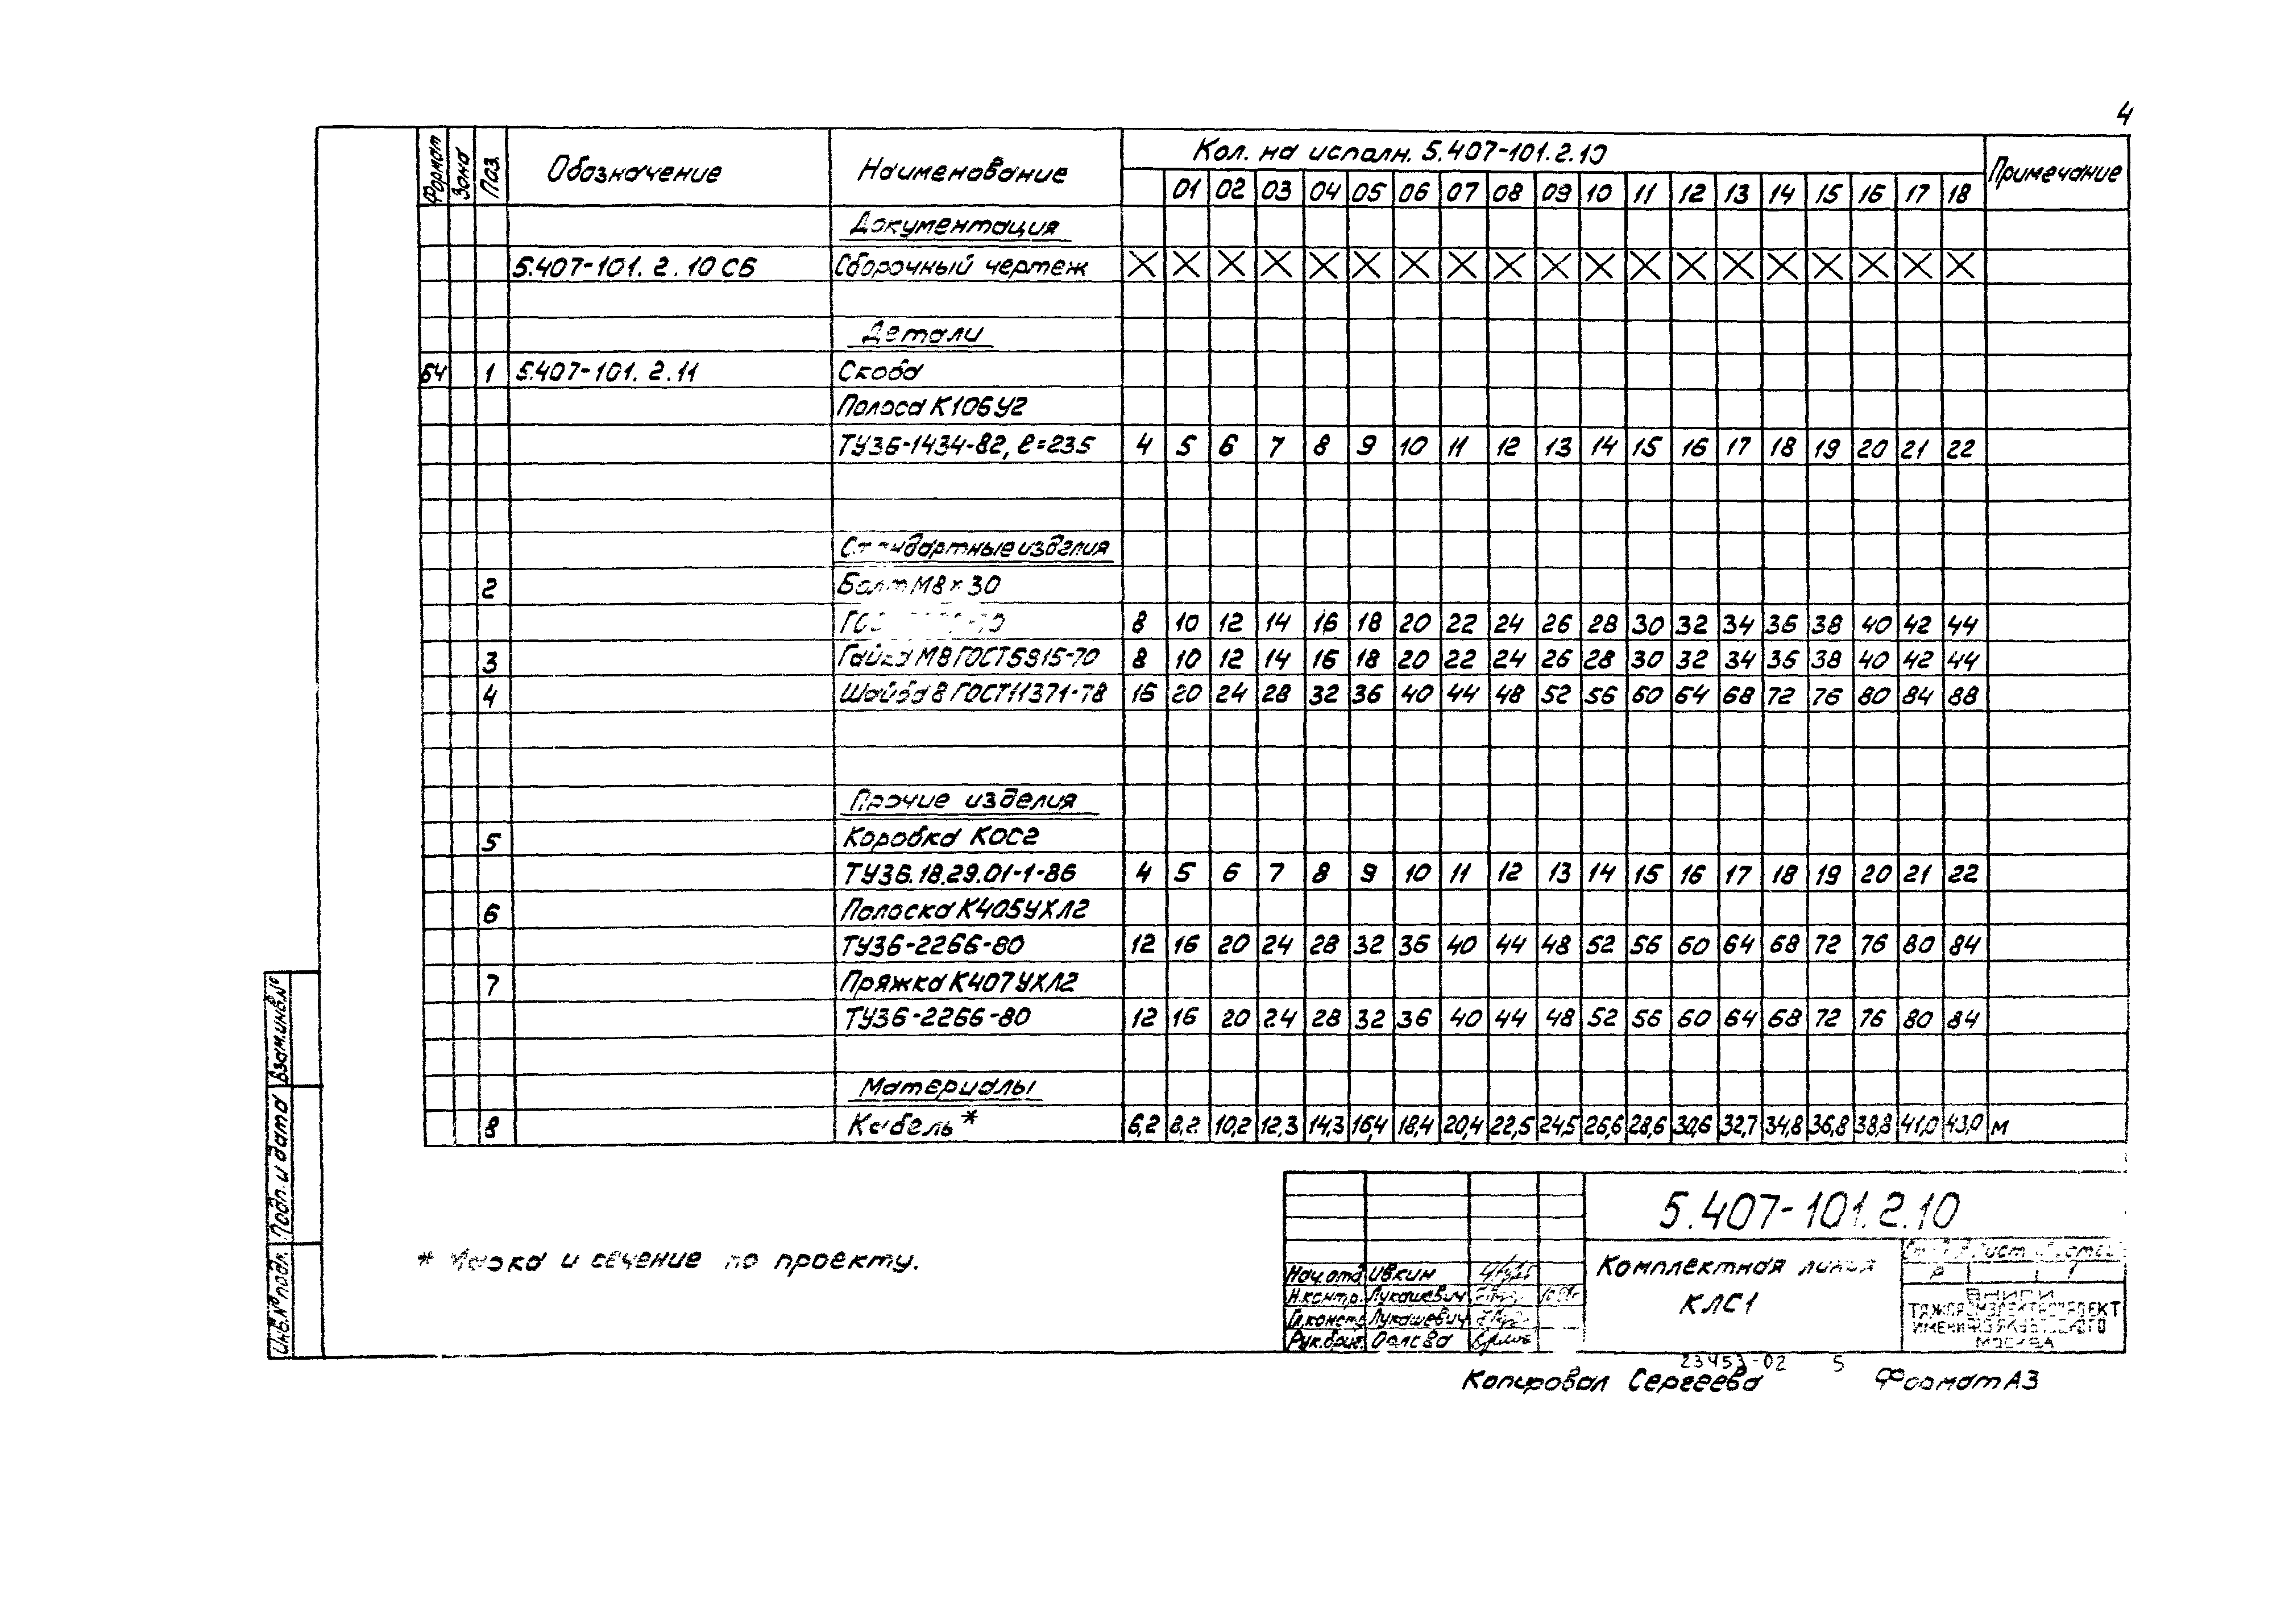 4
Формат Зона Поз. Обозначение Наименование Кол. на исполн. 5.407-101.2.10 Примечание
01 02 03 04 05 06 07 08 09 10 11 12 13 14 15 16 17 18
Документация
5.407-101.2.10 СБ Сборочный чертеж X X X X X X X X X X X X X X X X X X X
Детали
БЧ 1 5.407-101.2.11 Скоба
Полоса К106У2
ТУ36-1434-82, ℓ=235 4 5 6 7 8 9 10 11 12 13 14 15 16 17 18 19 20 21 22
Стандартные изделия
2 Болт М8×30
8 10 12 14 16 18 20 22 24 26 28 30 32 34 36 38 40 42 44
3 Гайка М8 ГОСТ 5915-70 8 10 12 14 16 18 20 22 24 26 28 30 32 34 36 38 40 42 44
4 Шайба 8 ГОСТ 11371-78 16 20 24 28 32 36 40 44 48 52 56 60 64 68 72 76 80 84 88
Прочие изделия
5 Коробка КОС2
ТУ36.18.29.01-1-86 4 5 6 7 8 9 10 11 12 13 14 15 16 17 18 19 20 21 22
6 Полоска К405УХЛ2
ТУ36-2266-80 12 16 20 24 28 32 36 40 44 48 52 56 60 64 68 72 76 80 84
7 Пряжка К407УХЛ2
ТУ36-2266-80 12 16 20 24 28 32 36 40 44 48 52 56 60 64 68 72 76 80 84
Материалы
8 Кабель* 6,2 8,2 10,2 12,3 14,3 16,4 18,4 20,4 22,5 24,5 26,6 28,6 30,6 32,7 34,8 36,8 38,8 41,0 43,0 м
* Марка и сечение по проекту.
Взам.инв.№
Подп. и дата
Инв.№ подл.
5.407-101.2.10
Комплектная линия
КЛС1
Лист
Р 1
Нач.отд Ивкин
Н.контр. Лукашевич
Гл.констр. Лукашевич
Рук.бриг.
ВНИПИ
ТЯЖПРОМЭЛЕКТРОПРОЕКТ
ИМЕНИ Ф.Б.ЯКУБОВСКОГО
МОСКВА
23453-02 5
Копировал Сергеева Формат А3